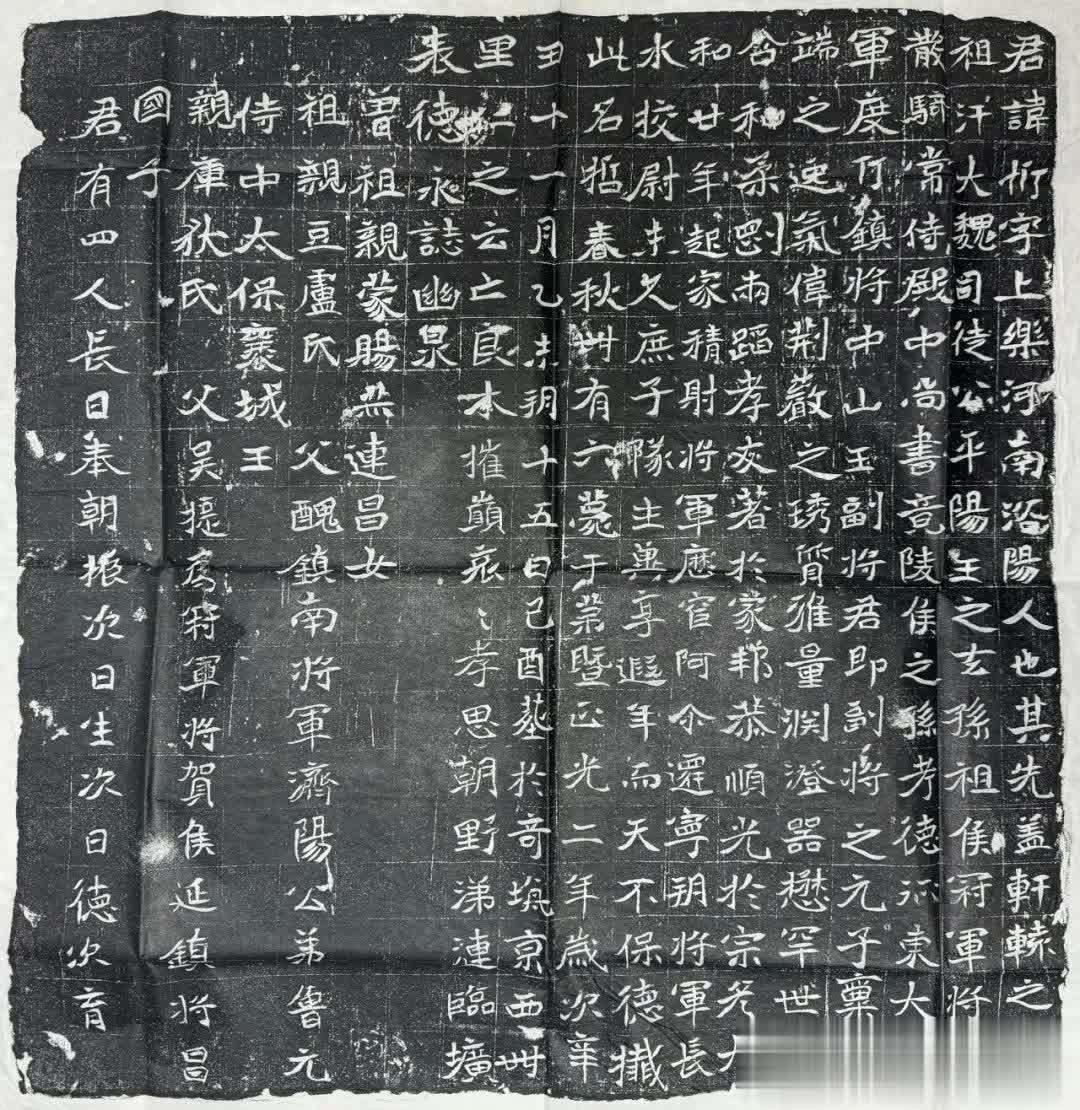 君諱忻字上樂河南洛陽人也其先盖軒轅之
祖汗大魏司徒公平陽王之玄孫祖侯冠軍將
散騎常侍殿中尚書竟陵侯之孫考德東大
軍度何鎮將中山王副將君即副將之元子稟
端之速氣偉荊巖之琇質雅量渕澄器懋罕世
含和柔剛兩蹈孝友著於家邦恭順光於宗老
和廿年起家積射將軍歷官阿仐遷寧朔將軍長
水校尉未久庶子隊主兾享遐年而天不保德殲
此名哲春秋卌有六薨于第暨正光二年歲次辛
丑十一月乙未朔十五日己酉塟於奇坑京西卌
里仁之云亡良木摧巔哀〻孝思朝野涕漣臨壙
表德永誌幽泉
曽祖親蒙賜無連昌女
祖親豆盧氏 父醜鎮南將軍濟陽公弟魯元
侍中太保襄城王
親庫狄氏 父吳提為將軍將賀侯延鎮將昌
國子
君有四人長日奉朝振次日生次日德次育